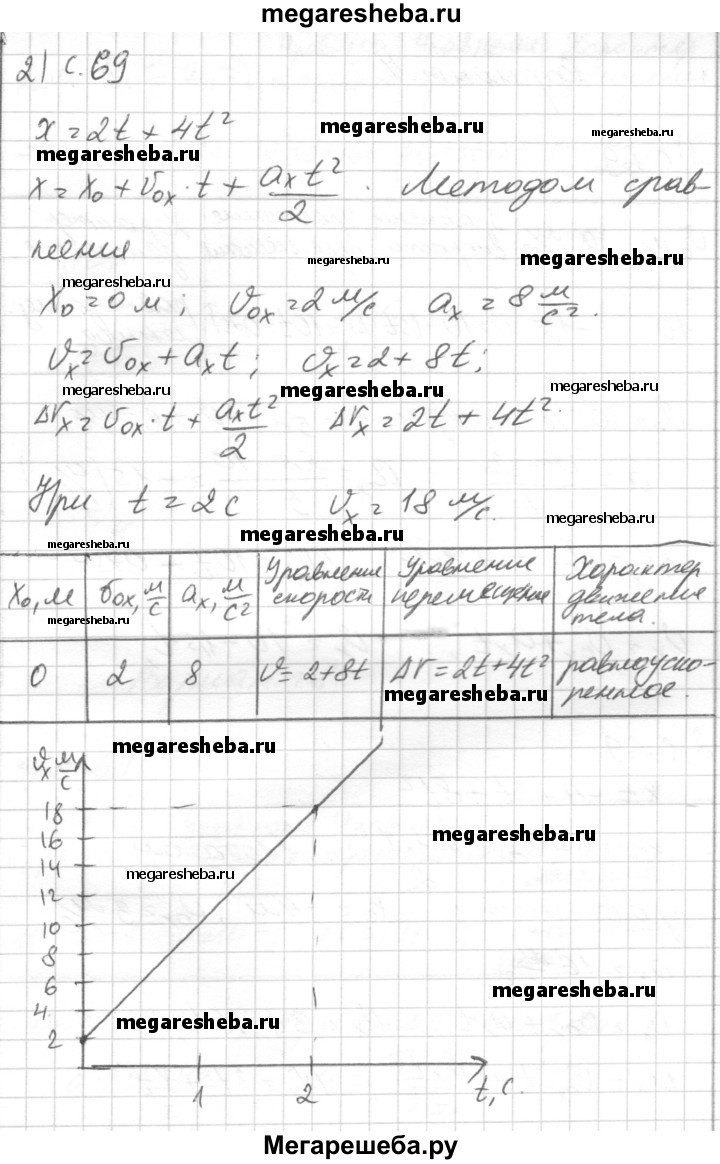 megaresheba.ru
2) с. 69
x = 2t + 4t²
megaresheba.ru megaresheba.ru
megaresheba.ru
x = x₀ + υ₀ₓ · t + aₓt²/2 . Методом срав-
нения
megaresheba.ru megaresheba.ru
megaresheba.ru
x₀ = 0 м ; υ₀ₓ = 2 м/с aₓ = 8 м/с².
υₓ = υ₀ₓ + aₓt ; υₓ = 2 + 8t ;
megaresheba.ru megaresheba.ru megaresheba.ru
Δrₓ = υ₀ₓ · t + aₓt²/2 Δrₓ = 2t + 4t².
При t = 2 с υₓ = 18 м/с.
megaresheba.ru megaresheba.ru megaresheba.ru
x₀, м υ₀ₓ, м/с aₓ, м/с² Уравнение скорости Уравнение перемещения Характер движения тела.
megaresheba.ru
0 2 8 υ = 2+8t Δr = 2t+4t² равноуско-
ренное.
megaresheba.ru
megaresheba.ru
υₓ м/с
18
16
megaresheba.ru
14
megaresheba.ru
12
10
8
6
megaresheba.ru
4
megaresheba.ru
2
1 2 t, с.
Мегарешеба.ру